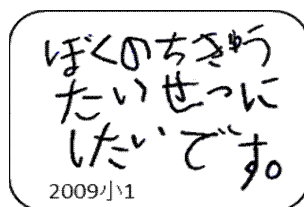 ぼくのちきゅう
たいせつに
したいです。
2009小1